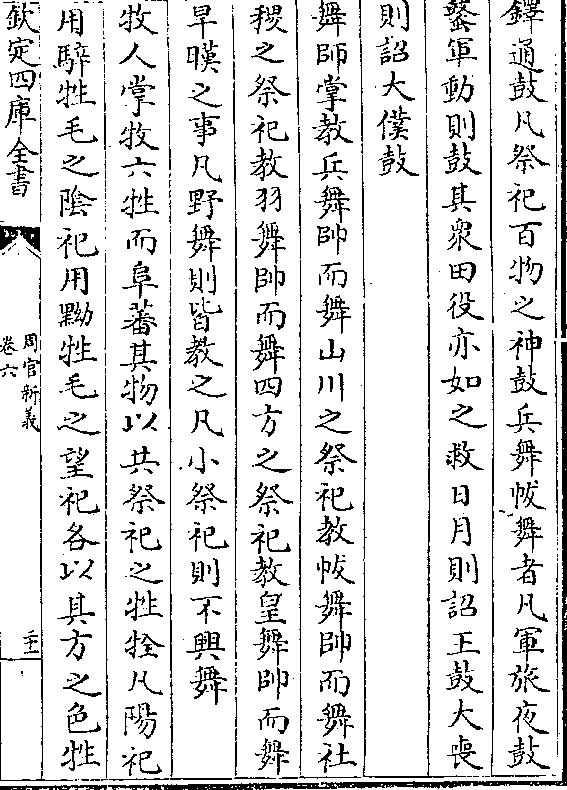 鐸通鼓凡祭祀百物之神鼓兵舞帗舞者凡軍旅夜鼓
鼜軍動則鼓其衆田役亦如之救日月則詔王鼓大喪
則詔大僕鼓
舞師掌教兵舞帥而舞山川之祭祀教帗舞帥而舞社
稷之祭祀教羽舞帥而舞四方之祭祀教皇舞帥而舞
旱暵之事凡野舞則皆教之凡小祭祀則不興舞
牧人掌牧六牲而阜蕃其物以共祭祀之牲牷凡陽祀
用騂牲毛之隂祀用黝牲毛之望祀各以其方之色牲
欽定四庫全書
周官新義
卷六
二十一